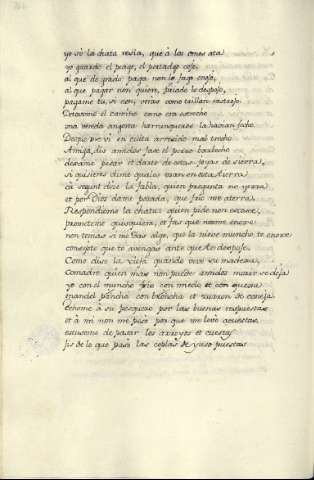 yo só la chata resia, que á los omes ata
yo guardo el paxo, el portadgo cojo,
al que de grado paga non lo fago enojo,
al que pagar non quien, priado le despojo,
pagame tu, si non, veras como trillan rastrojo.
Detavome el camino como era estrecho
una vereda angosta harruqueros la havian fecho
Desque me vi en cuita arrecido mal trecho
Amiga, dixe amidos faze el perro barbecho
dexame pasar et darte he estas joyas de sierra,
si quisieres dime quales usan en esta tierra
ca segunt dise la fabla, quien pregunta no yerra
et por Dios dame posada, que frio me aterra.
Respondiome la chata: quien pide non escoxe,
prometeme quisquiera, et fas que non me enoxe
non temas si me das algo, que la nieve muncho te enoxe
consejote que te avengas ante que te despoxe.
Como dise la vieja quando beve su madexa,
comadre quien mas non puede amidos morir se dexa
yo con el muncho frio con miedo et con quexa
mandel pancha con broncha et zurron de coneja
Echome á su pescuezo por las buenas respuestas
et a mi non me pesó por que me levó acuestas,
escusome de pasar los arroyos et cuestas
fis de lo que pasó las coplas de yuso puestas